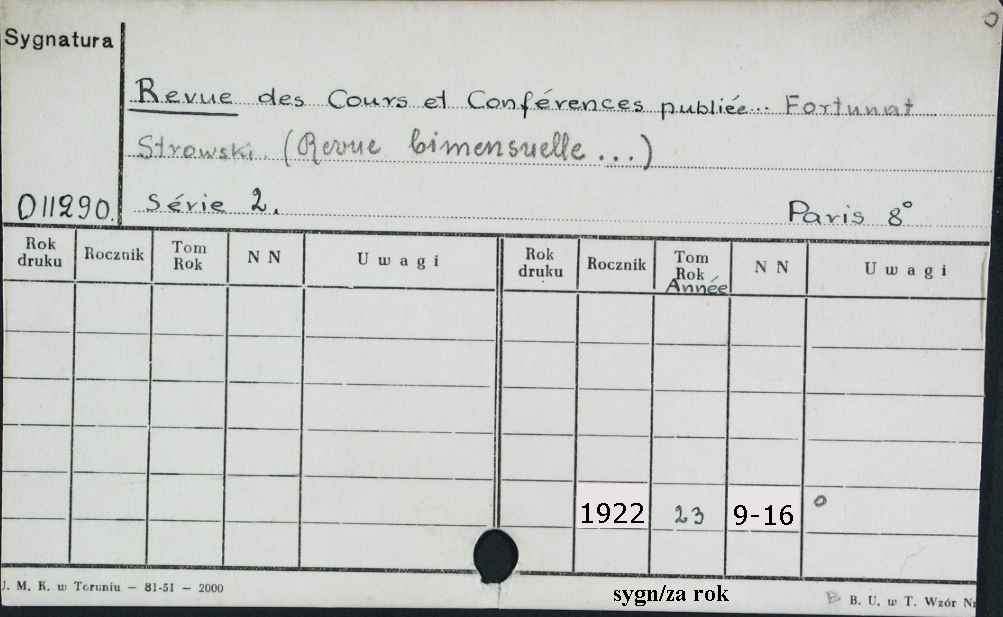 Sygnatura
Revue des Cours et Conférences publiée... Fortunat
Strowski (Revue bimensuelle...)
O11290. Série 2. Paris 8°
Rok druku Rocznik Tom Rok N N Uwagi Rok druku Rocznik Tom Rok Année N N Uwagi
1922 23 9-16 o
J. M. K. w Toruniu – 81-51 – 2000
sygn/za rok
B. U. w T. Wzór Nr